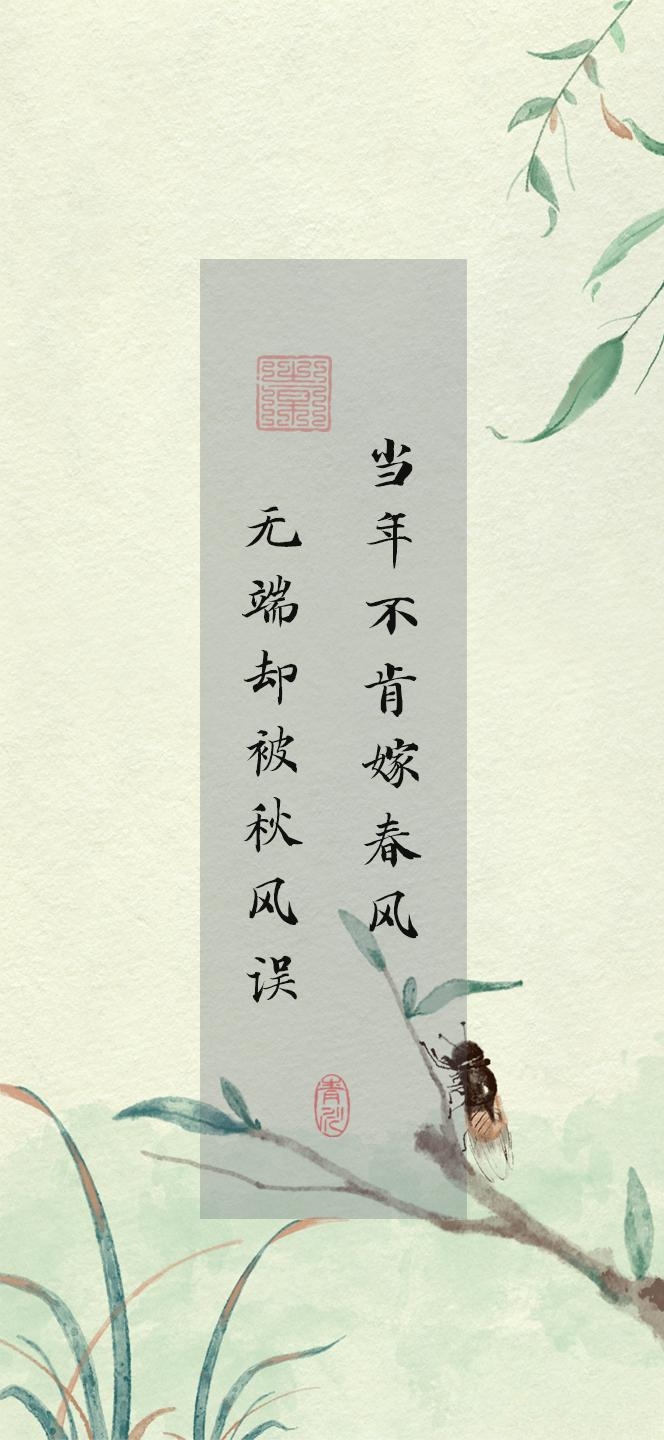 当年不肯嫁春风
无端却被秋风误